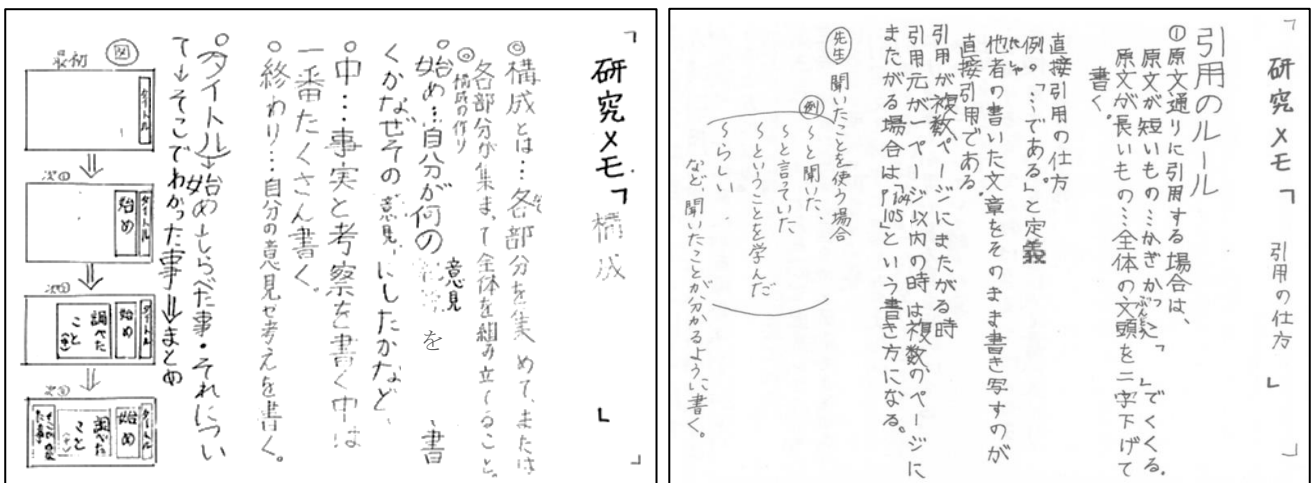 研究メモ「構成」
◎構成とは…各部分を集めて、または
各部分が集まって全体を組み立てること。
◎構成の作り
○始め…自分が何の意見を書
くかなぜその意見にしたかなど、
○中…事実と考察を書く中は
一番たくさん書く。
○終わり…自分の意見や考えを書く。
○タイトル→始め→しらべた事・それについ
て→そこでわかった事⇒まとめ
図
最初
タイトル
次①
タイトル
始め
次②
タイトル
始め
調べた
こと
次③
タイトル
始め
調べた
こと
研究メモ「引用の仕方」
引用のルール
①原文通りに引用する場合は、
原文が短いもの…かぎかっこ「 」でくくる。
原文が長いもの…全体の文頭を二字下げて
書く。
直接引用の仕方
例。「…である。」と定義
他者の書いた文章をそのまま書き写すのが
直接引用である。
引用が複数ページにまたがる時
引用元が一ページ以内の時は複数のページに
またがる場合は「P104 105」という書き方になる。
先生 聞いたことを使う場合
例
～と聞いた、
～と言っていた
～ということを学んだ
～らしい
など、聞いたことが分かるように書く。